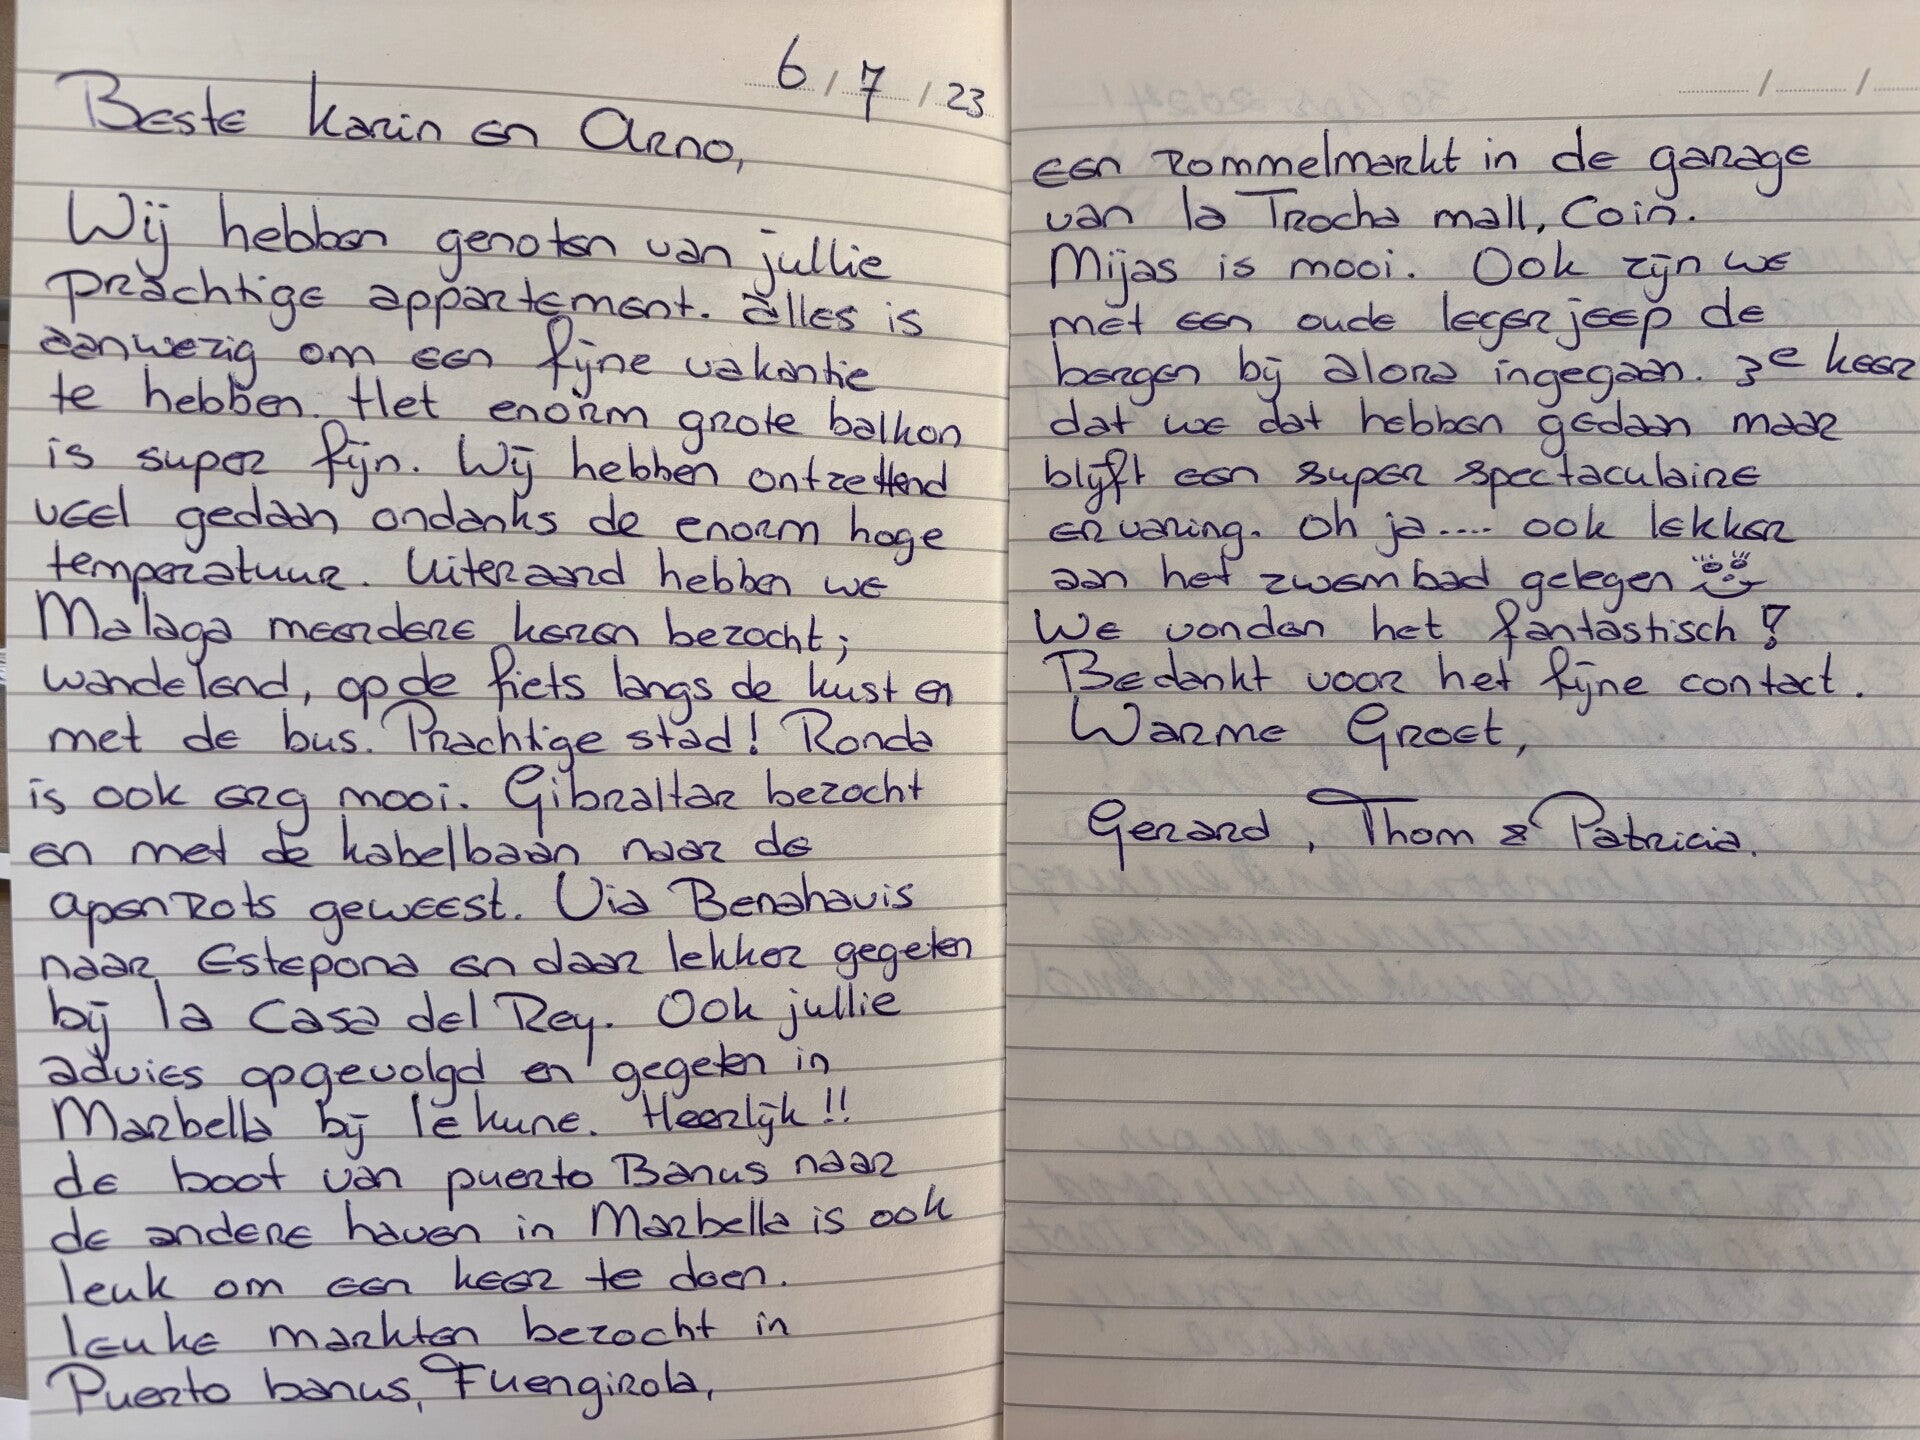 6 / 7 / 23
Beste Karin en Arno,
Wij hebben genoten van jullie
prachtige appartement. alles is
aanwezig om een fijne vakantie
te hebben. Het enorm grote balkon
is super fijn. Wij hebben ontzettend
veel gedaan ondanks de enorm hoge
temperatuur. Uiteraard hebben we
Malaga meerdere keren bezocht;
wandelend, op de fiets langs de kust en
met de bus. Prachtige stad! Ronda
is ook erg mooi. Gibraltar bezocht
en met de kabelbaan naar de
apenrots geweest. Via Benahavis
naar Estepona en daar lekker gegeten
bij la Casa del Rey. Ook jullie
advies opgevolgd en gegeten in
Marbella bij le kune. Heerlijk!!
de boot van puerto Banus naar
de andere haven in Marbella is ook
leuk om een keer te doen.
leuke markten bezocht in
Puerto banus, Fuengirola,
een rommelmarkt in de garage
van la Trocha mall, Coin.
Mijas is mooi. Ook zijn we
met een oude legerjeep de
bergen bij alora ingegaan. 3e keer
dat we dat hebben gedaan maar
blijft een super spectaculaire
ervaring. Oh ja.... ook lekker
aan het zwembad gelegen
We vonden het fantastisch!
Bedankt voor het fijne contact.
Warme Groet,
Gerard, Thom & Patricia.